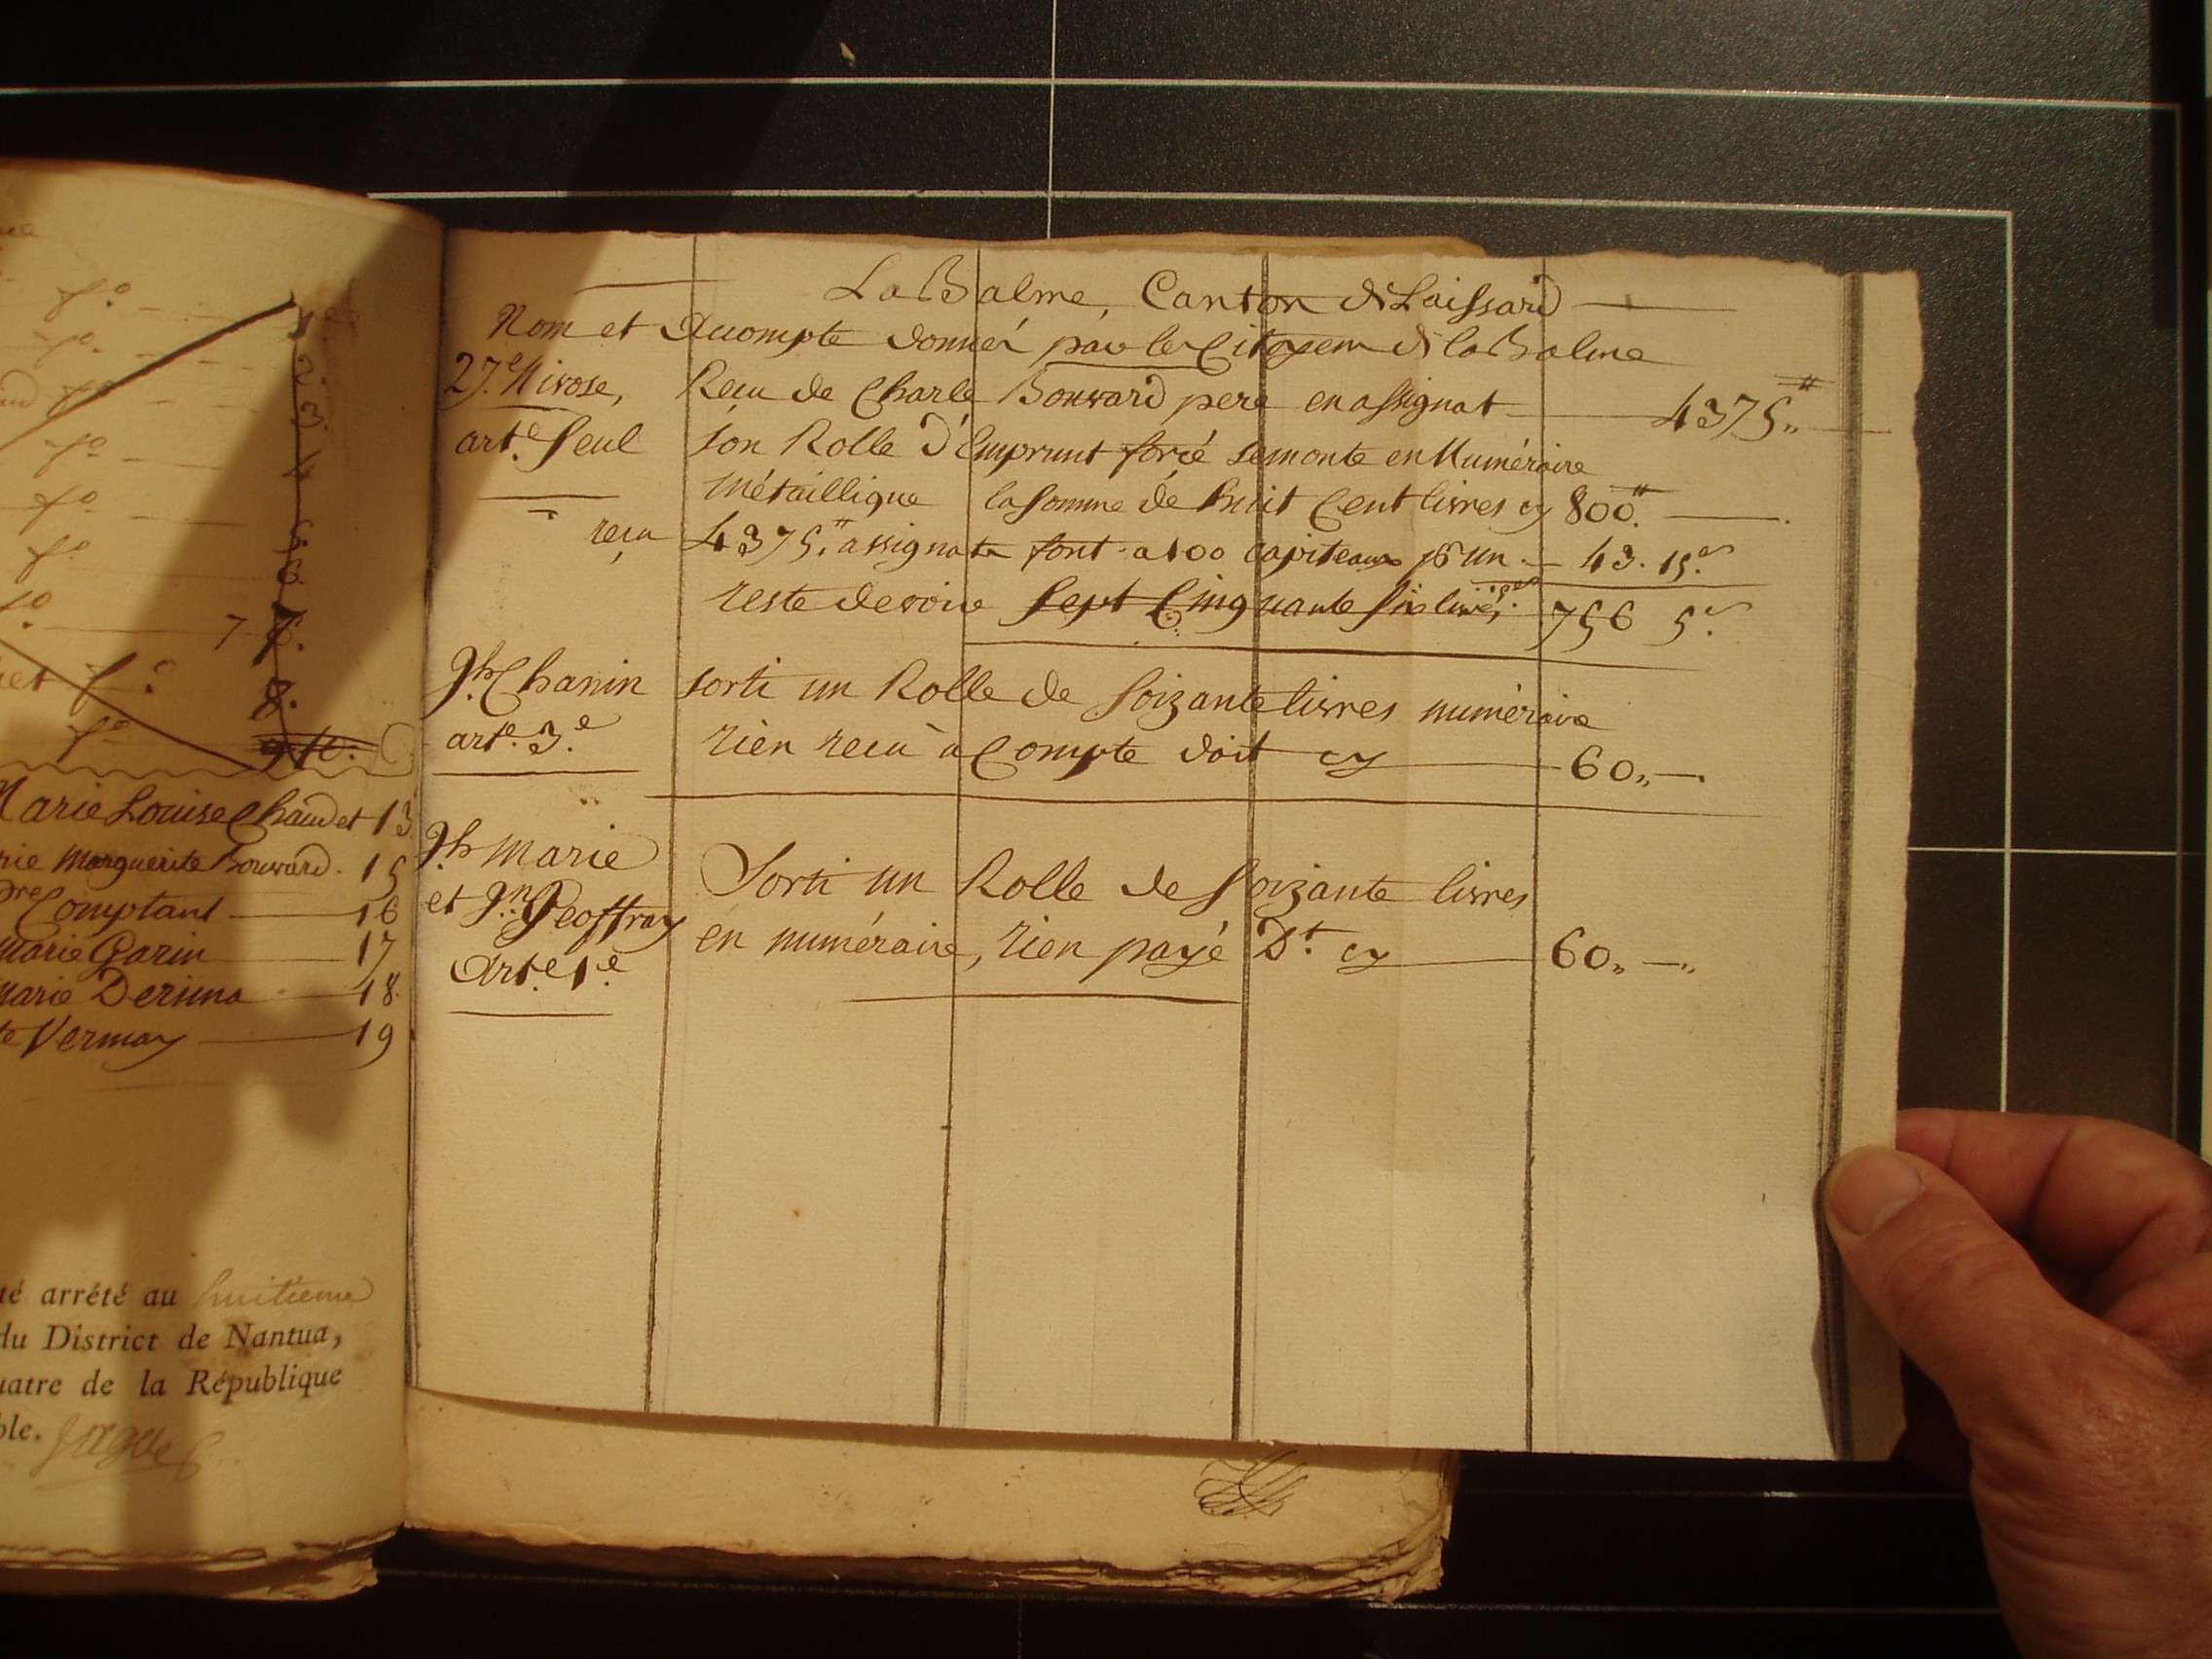 fo
fo
fo
fo
fo
fo
fo 7 7.
fo 8.
fo
Marie Louise Chaudet 13
Marguerite Bouvard. 15
Comptant 16
Marie Garin 17
Marie 18.
Vermay 19
té arrêté au huitieme
du District de Nantua,
uatre de la République
ble.
La Balme, Canton de Laissard
Nom et Accompte donnés par les Citoyens de la Balme
27.e Nivose, Reçu de Charle Bouvard pere en assignat 4375.,
art.e Seul son Rolle d'Emprunt forcé se monte en Numéraire
métaillique la somme de huit Cent livres cy 800.
reçu 4375. assignats font a 100 capiteaux pr un 43. 15.s
reste devoir Sept Cinquante Six livres, 5s. 756 5.s
Jh. Chanin sorti un Rolle de Soizante livres numéraire
art.e 3.e rien reçu à Compte doit cy 60.,
Jh. Marie
et Jn. Geoffray Sorti un Rolle de Soizante livres
Art.e 1.e en numéraire, rien payé D.t cy 60.,